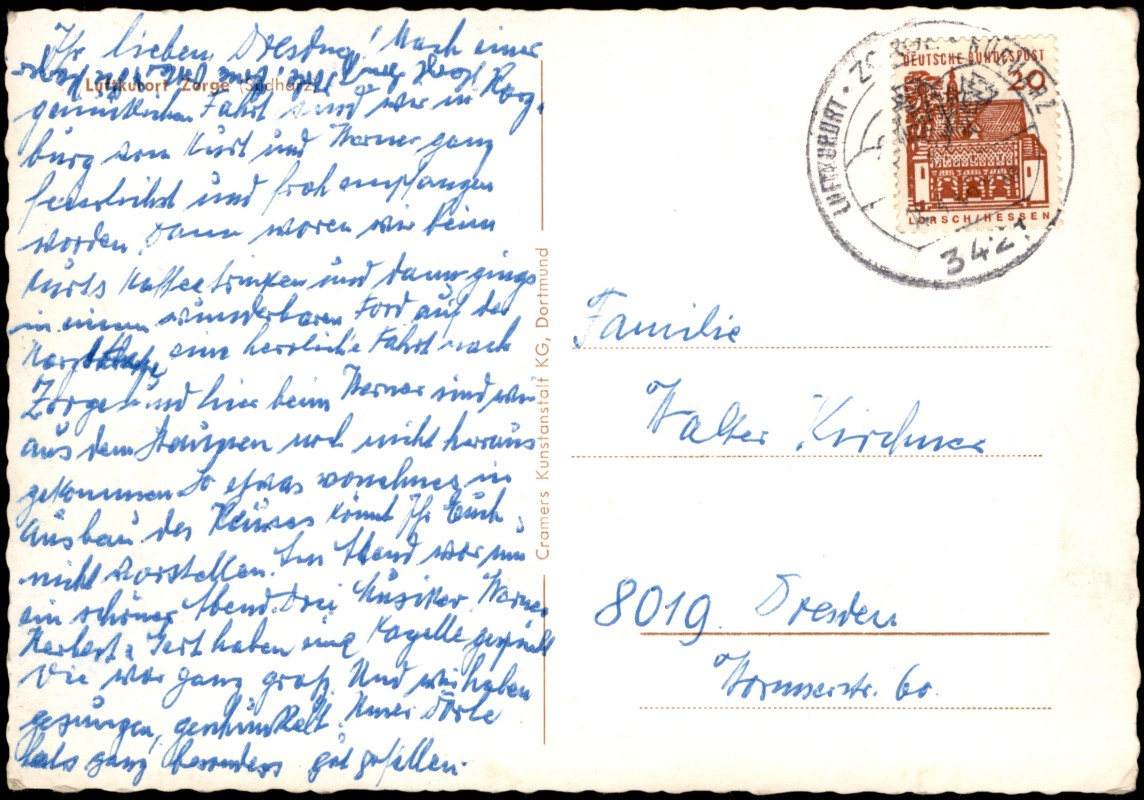 Ihr lieben Dresdner! Nach einer
Luftkurort Zorge (Südharz)
gemütlichen Fahrt sind wir in Harz-
burg von Kurt und Werner ganz
feierlichst und froh empfangen
worden. Dann waren wir beim
Kurts Kaffee trinken und dann gings
in einem wunderbaren Ford auf der
eine herrliche Fahrt nach
Zorge und hier beim Werner sind wir
aus dem Staunen noch nicht heraus
gekommen. So etwas vornehmes in
Ausbau des Hauses könnt Ihr Euch
nicht vorstellen. Am Abend war nun
ein schöner Abend. Drei Musiker Werner
Herbert & Gert haben eine Kapelle gespielt
Die war ganz groß. Und wir haben
gesungen, geschunkelt. Unser Dörle
hats ganz besonders gut gefallen.
Cramers Kunstanstalt KG, Dortmund
DEUTSCHE BUNDESPOST
20
LORSCH/HESSEN
LUFTKURORT · ZORGE · SÜDHARZ
3421
Familie
Walter Kirchner
8019 Dresden
Wormserstr. 60.